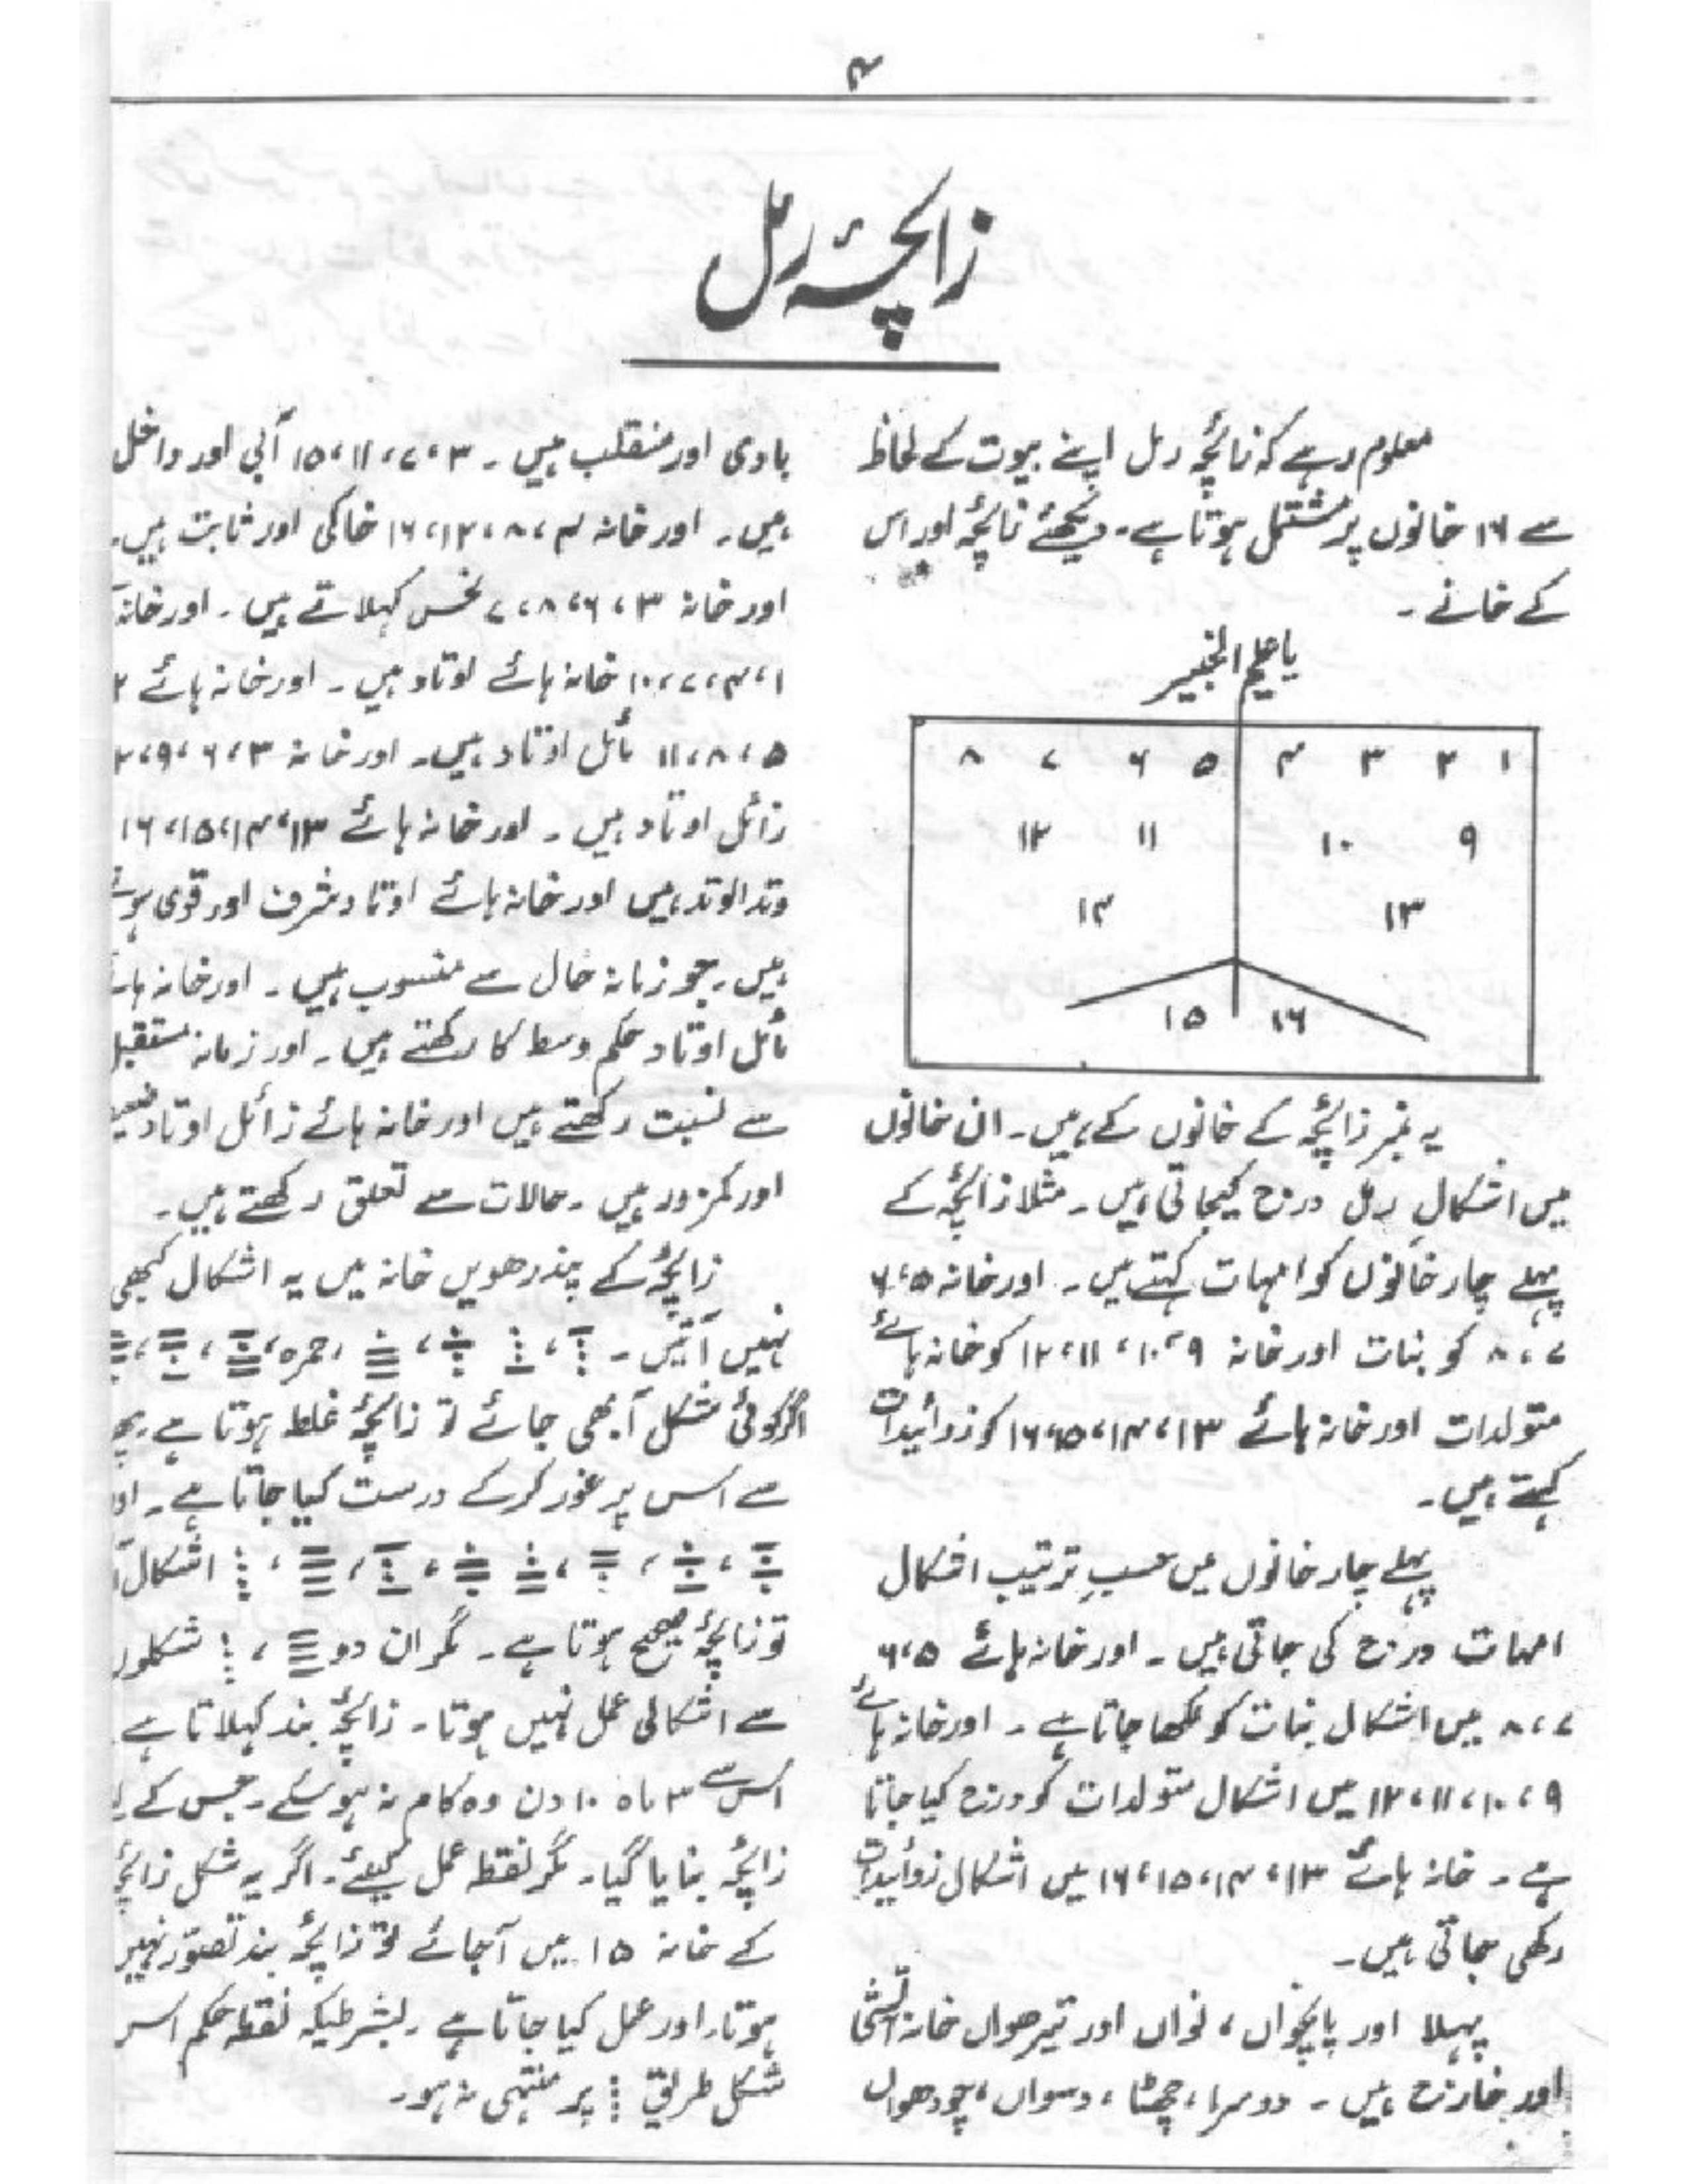 ۴
زائچہ رمل
معلوم رہے کہ زائچہ رمل اپنے بیوت کے لحاظ
سے ۱۶ خانوں پر مشتمل ہوتا ہے۔ دیکھئے زائچہ اور اس
کے خانے۔
یا علیم الخبیر
۱ ۲ ۳ ۴ ۵ ۶ ۷ ۸
۹ ۱۰ ۱۱ ۱۲
۱۳ ۱۴
۱۶ ۱۵
یہ نمبر زائچہ کے خانوں کے ہیں۔ ان خانوں
میں اشکالِ رمل درج کیجاتی ہیں۔ مثلاً زائچہ کے
پہلے چار خانوں کو امہات کہتے ہیں۔ اور خانہ ۵، ۶
۷، ۸ کو بنات اور خانہ ۹، ۱۰، ۱۱، ۱۲ کو خانہ ہائے
متولدات اور خانہ ہائے ۱۳، ۱۴، ۱۵، ۱۶ کو زوائیدات
کہتے ہیں۔
پہلے چار خانوں میں حسبِ ترتیب اشکال
امہات درج کی جاتی ہیں۔ اور خانہ ہائے ۵، ۶
۷، ۸ میں اشکال بنات کو لکھا جاتا ہے۔ اور خانہ ہائے
۹، ۱۰، ۱۱، ۱۲ میں اشکال متولدات کو درج کیا جاتا
ہے۔ خانہ ہائے ۱۳، ۱۴، ۱۵، ۱۶ میں اشکال زوائیدات
رکھی جاتی ہیں۔
پہلا اور پانچواں، نواں اور تیرھواں خانہ آتشی
اور خارج ہیں۔ دوسرا، چھٹا، دسواں، چودھواں
بادی اور منقلب ہیں۔ ۳، ۷، ۱۱، ۱۵ آبی اور داخل
ہیں۔ اور خانہ ۴، ۸، ۱۲، ۱۶ خاکی اور ثابت ہیں۔
اور خانہ ۳، ۶، ۸، ۷ نحس کہلاتے ہیں۔ اور خانہ
۱، ۴، ۷، ۱۰ خانہ ہائے اوتاد ہیں۔ اور خانہ ہائے ۲
۵، ۸، ۱۱ مائل اوتاد ہیں۔ اور خانہ ۳، ۶، ۹، ۲
زائل اوتاد ہیں۔ اور خانہ ہائے ۱۳، ۱۴، ۱۵، ۱۶
وتد الوتد ہیں اور خانہ ہائے اوتاد شرف اور قوی ہوتے
ہیں۔ جو زمانہ حال سے منسوب ہیں۔ اور خانہ
مائل اوتاد حکم وسط کا رکھتے ہیں۔ اور زمانہ مستقبل
سے نسبت رکھتے ہیں اور خانہ ہائے زائل اوتاد
اور کمزور ہیں۔ حالات سے تعلق رکھتے ہیں۔
زائچہ کے پندرھویں خانہ میں یہ اشکال کبھی
نہیں آتیں۔ حمرہ،
اگر کوئی شکل آ بھی جائے تو زائچہ غلط ہوتا ہے۔ پھر
سے اس پر غور کرکے درست کیا جاتا ہے۔ اور
اشکال
تو زائچہ صحیح ہوتا ہے۔ مگر ان دو ، شکلوں
سے اشکالی عمل نہیں ہوتا۔ زائچہ بند کہلاتا ہے
اس سے ۳ ماہ ۱۰ دن وہ کام نہ ہو سکے۔ جس کے
زائچہ بنایا گیا۔ مگر نقطہ عمل کیلئے۔ اگر یہ شکل زائچہ
کے خانہ ۱۵ میں آجائے تو زائچہ بند تصوّر نہیں
ہوتا۔ اور عمل کیا جاتا ہے۔ بشرطیکہ نقطہ حکم اس
شکل طریق پر منتہی نہ ہو۔